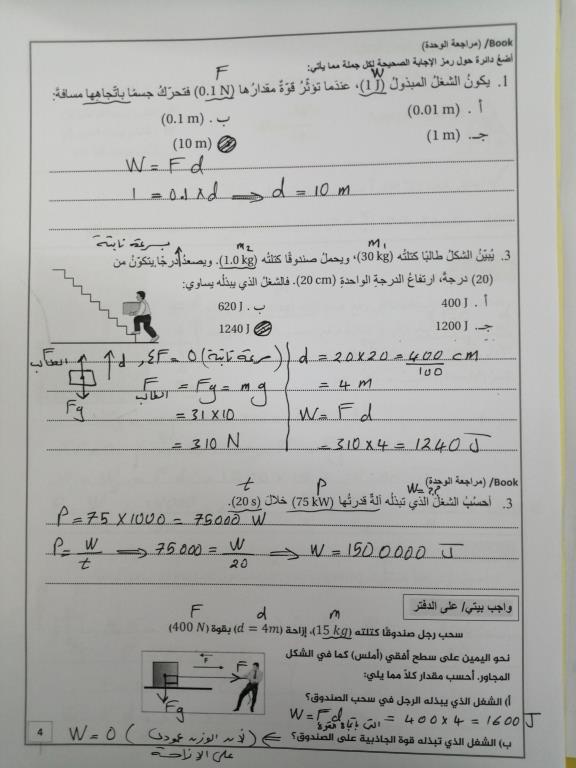 Book/ (مراجعة الوحدة)
أضعُ دائرة حول رمز الإجابة الصحيحة لكل جملة مما يأتي:
F W
1. يكونُ الشغلُ المبذولُ (1 J)، عندَما تؤثّرُ قوّةٌ مقدارُها (0.1 N) فتحرّكُ جسمًا باتّجاهِها مسافةَ:
أ . (0.01 m) ب . (0.1 m)
جـ. (1 m) (10 m)
W = F d
1 = 0.1 × d ⟹ d = 10 m
بسرعة ثابتة m₂ m₁
3. يُبيّنُ الشكلُ طالبًا كتلتُه (30 kg)، ويحملُ صندوقًا كتلتُه (1.0 kg). ويصعدُ درجًا يتكوّنُ من
(20) درجةً، ارتفاعُ الدرجةِ الواحدةِ (20 cm). فالشغلُ الذي يبذلُه يساوي:
أ . 400 J ب . 620 J
جـ. 1200 J 1240 J
d = 20×20 = 400 cm
100
= 4 m
W = F d
= 310 × 4 = 1240 J
ΣF = 0 (سرعة ثابتة)
F الطالب = Fg = mg
= 31 × 10
= 310 N
F الطالب
d
Fg
Book/ (مراجعة الوحدة)
t P W = ??
3. أحسُبُ الشغلَ الذي تبذلُه آلةٌ قدرتُها (75 kW) خلالَ (20 s).
P = 75 × 1000 = 75000 W
P = W/t ⟹ 75000 = W/20 ⟹ W = 1500000 J
واجب بيتي/ على الدفتر
F d m
سحب رجل صندوقًا كتلته (15 kg)، إزاحة (d = 4m) بقوة (400 N)
نحو اليمين على سطح أفقي (أملس) كما في الشكل
المجاور. أحسب مقدار كلاً مما يلي:
F
F
Fg
أ) الشغل الذي يبذله الرجل في سحب الصندوق؟
W = Fd = 400 × 4 = 1600 J
ب) الشغل الذي تبذله قوة الجاذبية على الصندوق؟
W = 0 (لأن الوزن عمودي
على الإزاحة
4